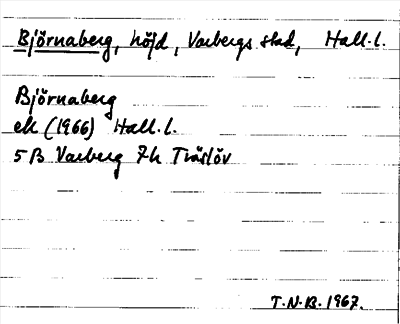 Björnaberg, höjd, Varbergs stad, Hall. l.
Björnaberg
ek (1966) Hall. l.
5B Varberg 7h Träslöv
T.N.B. 1967.